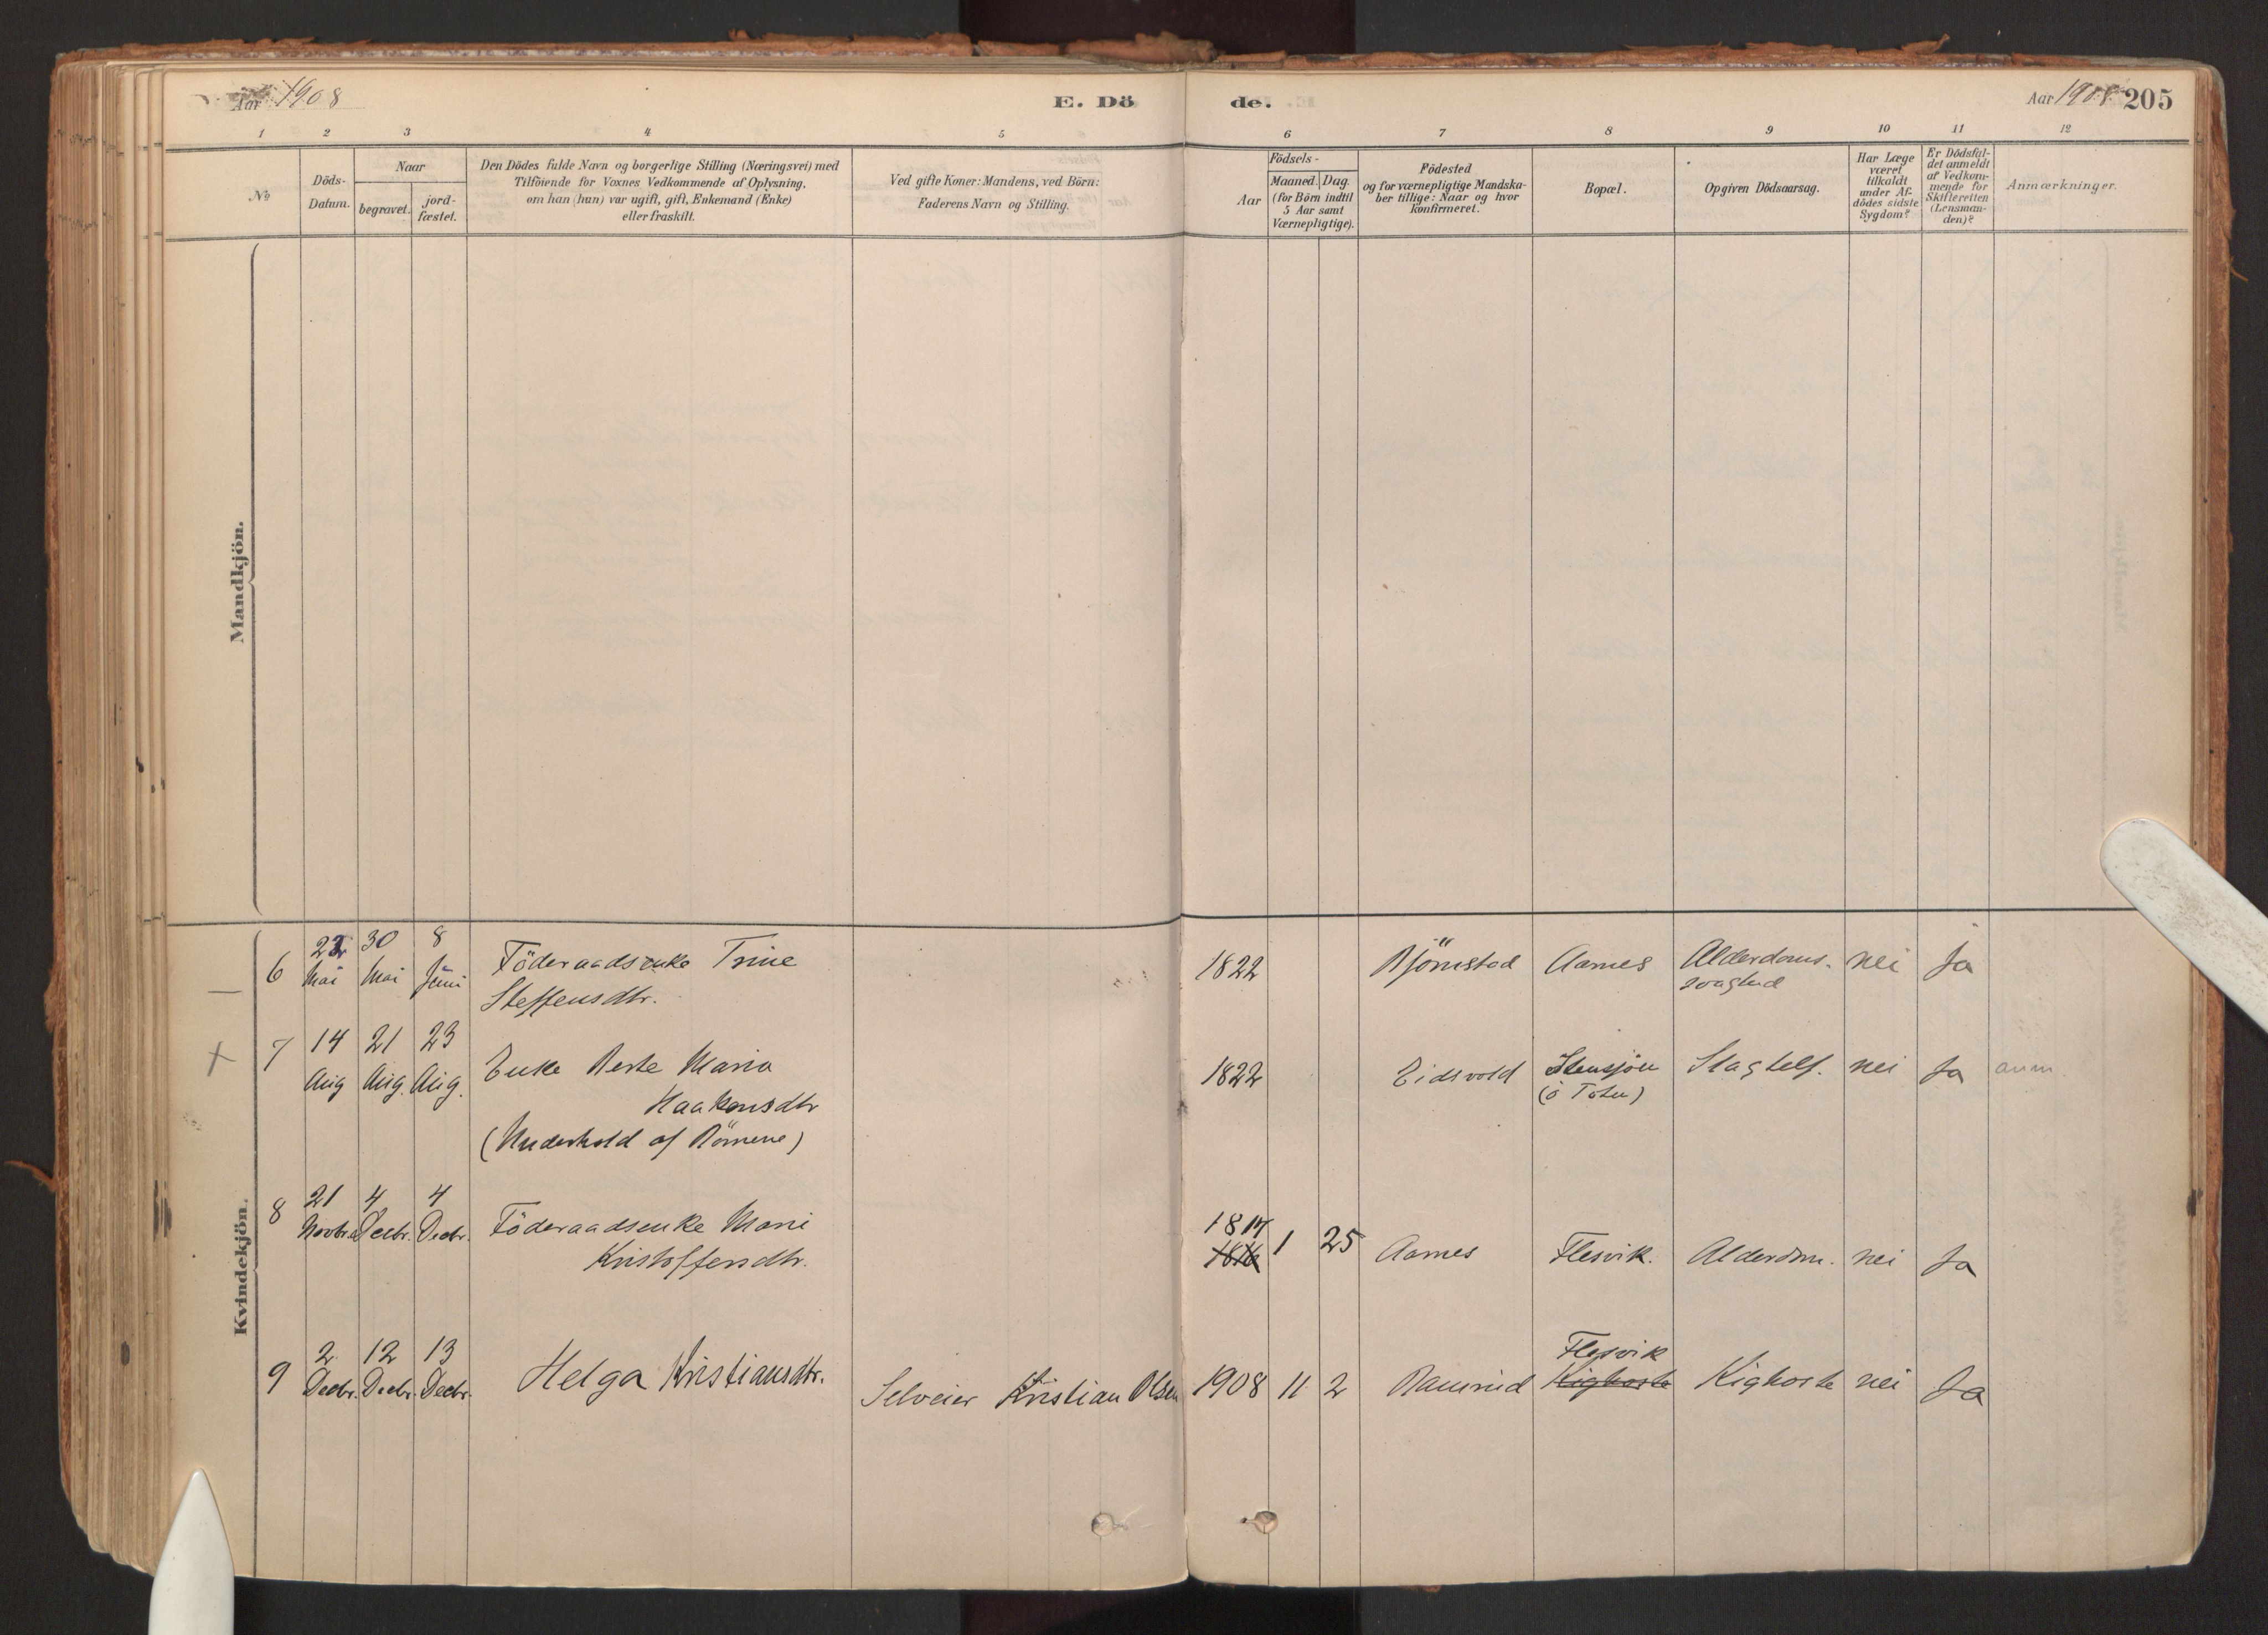 Aar 1908
E. Dö
de.
Aar 1908 205
1 2 3 4 5 6 7 8 9 10 11 12
No
Döds-
Datum.
Naar
begravet.
jord-
fæstet.
Den Dödes fulde Navn og borgerlige Stilling (Næringsvei) med
Tilföiende for Voxnes Vedkommende af Oplysning,
om han (hun) var ugift, gift, Enkemand (Enke)
eller fraskilt.
Ved gifte Koner: Mandens, ved Börn:
Faderens Navn og Stilling.
Födsels-
Aar
Maaned. Dag.
(for Börn indtil
5 Aar samt
Værnepligtige).
Födested
og for værnepligtige Mandska-
ber tillige: Naar og hvor
konfirmeret.
Bopæl.
Opgiven Dödsaarsag.
Har Læge
været
tilkaldt
under Af-
dödes sidste
Sygdom?
Er Dödsfal-
det anmeldt
af Vedkom-
mende for
Skifteretten
(Lensman-
den)?
Anmærkninger.
Mandkjön.
Kvindekjön.
6 Mai 30 Mai 8 Juni
Föderaadsenke Trine
Steffensdtr.
1822 Björnstad Aarnes Alderdoms-
svaghed
nei Ja
+ 7 14 Aug 21 Aug. 23 Aug.
Enke Berte Maria
Haakensdtr
(Underhold af Börnene)
1822 Eidsvold Stensjön
(ö Toten)
Slagtelf. nei Ja anm
8 21 Novbr. 4 Decbr. 4 Decbr.
Föderaadsenke Marie
Kristoffersdtr.
1817
1816 1 25 Aarnes Flesvik. Alderdom. nei Ja
9 2 Decbr. 12 Decbr. 13 Decbr.
Helga Kristiansdtr.
Selveier Kristian Olsen
1908 11 2 Ramrud
Flesvik
Kighoste
Kighoste nei Ja